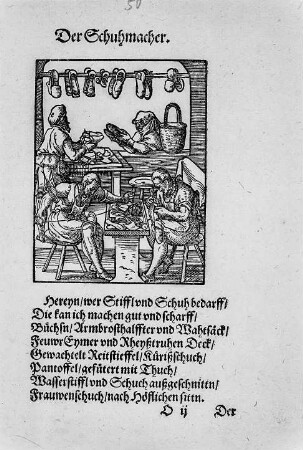 50
Der Schuhmacher.
Hereyn/wer Stiffl vnd Schuh bedarff/
Die kan ich machen gut vnd scharff/
Büchsn/Armbrosthalffter vnd Wahtsäck/
Feuwr Eymer vnd Rheyßtruhen Deck/
Gewachtelt Reitstieffel/Kürißschuch/
Pantoffel/gefütert mit Thuch/
Wasserstiffl vnd Schuch außgeschnittn/
Frauwenschuch/nach Höflichen sittn.
O ij Der